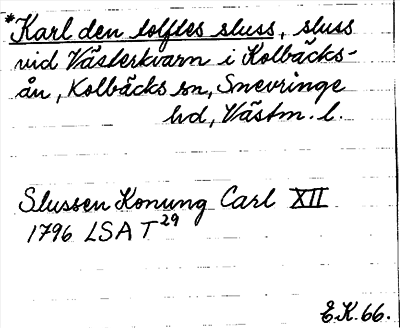 *Karl den tolftes sluss, sluss
vid Västerkvarn i Kolbäcks-
ån, Kolbäcks sn, Snevringe
hd, Västm. l.
Slussen Konung Carl XII
1796 LSA T29
E.K. 66.